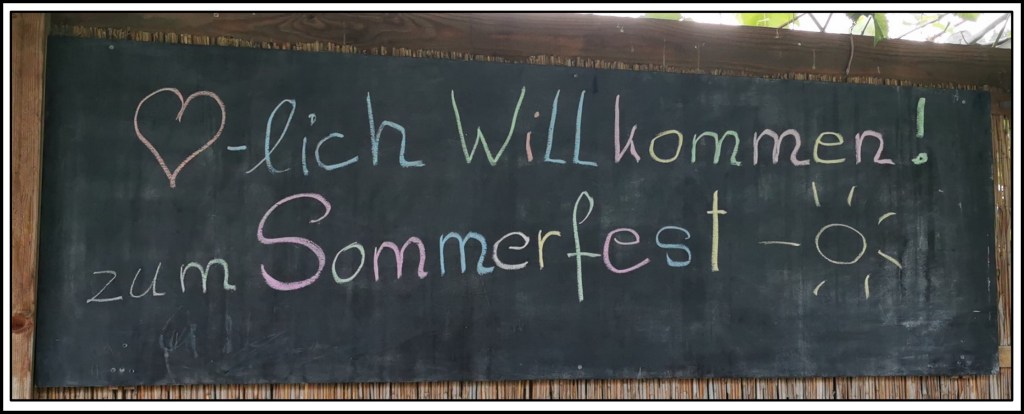 ♡-lich Willkommen!
zum Sommerfest